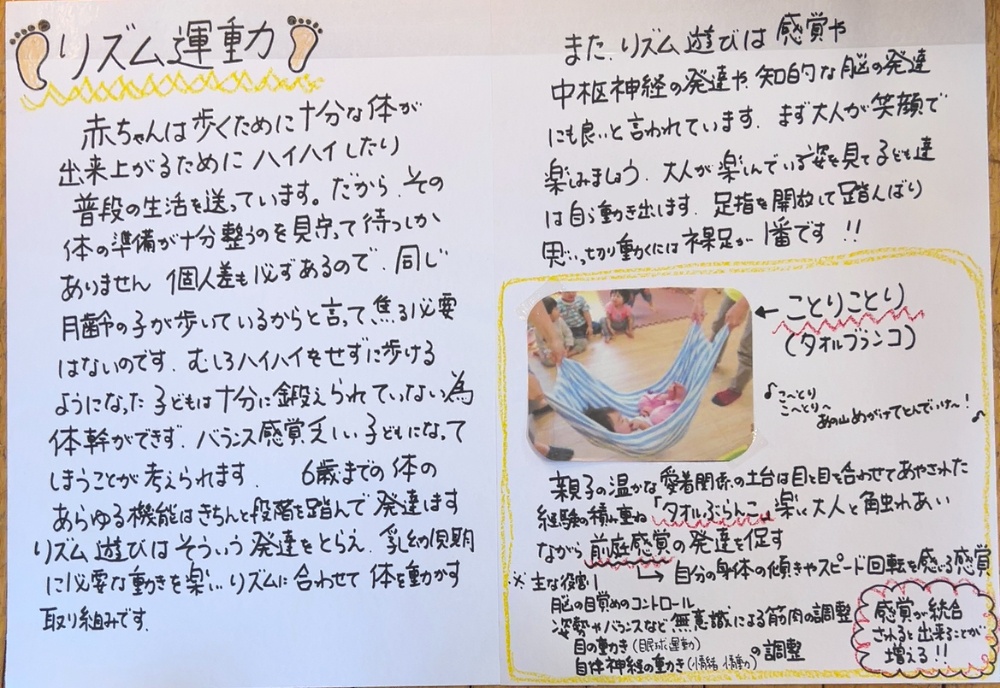 リズム運動
赤ちゃんは歩くために十分な体が
出来上がるために ハイハイしたり
普段の生活を送っています。だから、その
体の準備が十分整うのを見守って待つしか
ありません 個人差も必ずあるので、同じ
月齢の子が歩いているからと言って焦る必要
はないのです。むしろハイハイをせずに歩ける
ようになった子どもは十分に鍛えられていない為
体幹ができず、バランス感覚乏しい子どもになって
しまうことが考えられます。 6歳までの体の
あらゆる機能はきちんと段階を踏んで発達します
リズム遊びはそういう発達をとらえ、乳幼児期
に必要な動きを楽しいリズムに合わせて体を動かす
取り組みです。
また、リズム遊びは感覚や
中枢神経の発達や、知的な脳の発達
にも良いと言われています。まず大人が笑顔で
楽しみましょう。大人が楽しんでいる姿を見て子ども達
は自ら動き出します。足指を開放して踏んばり
思いっきり動くには裸足が1番です!!
←ことりことり
(タオルブランコ)
♪ こ〜とり
こ〜とり〜
あの山めがけてとんでいけ〜! ♪
親子の温かな愛着関係の土台は目と目を合わせてあやされた
経験の積み重ね「タオルぶらんこ」楽しく大人と触れあい
ながら前庭感覚の発達を促す
↳自分の身体の傾きやスピード回転を感じる感覚
※主な役割
脳の目覚めのコントロール
姿勢やバランスなど無意識による筋肉の調整
目の動き(眼球運動)
自体神経の動き(情緒、情動) の調整
感覚が統合
されると出来ることが
増える!!